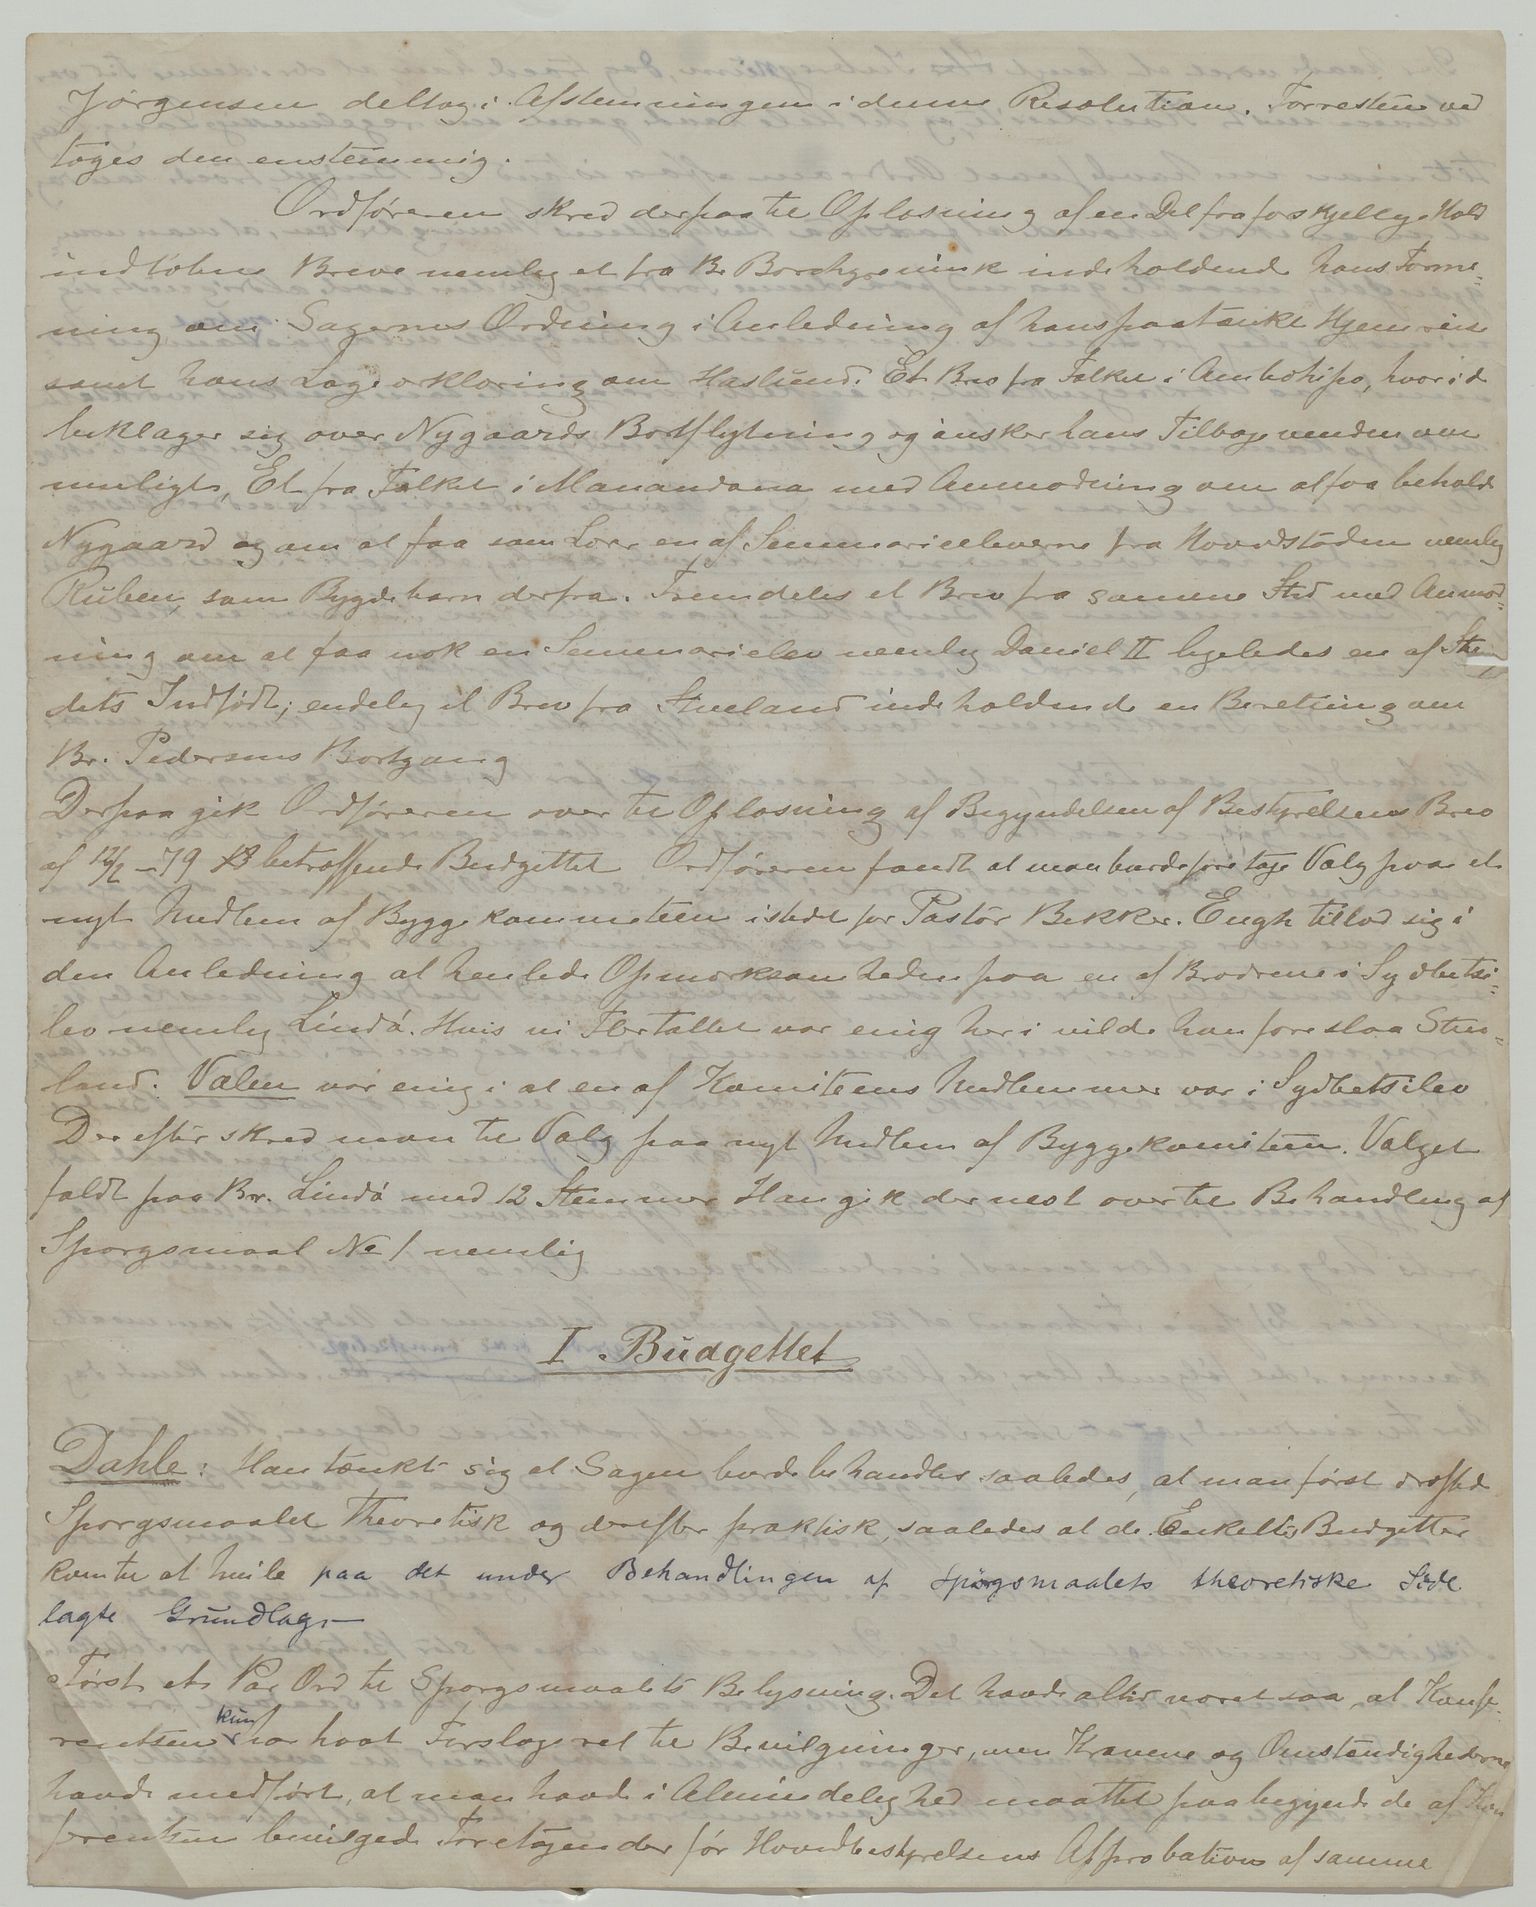 Jørgensen deltog i Afstemningen i denne Resolution. Forresten ved
toges den enstemmig.
Ordføreren skred derpaa til Oplæsning af en Del fra forskjellige Hold
indløbne Breve nemlig et fra Br. Borchgrevink indeholdende hans Forme-
ning om Sagernes Ordning i Anledning af hans paatænkte Hjemreise
samt hans Lægeerklæring om Haslund. Et Brev fra Folket i Ambohipo, hvori de
beklager sig over Nygaards Bortflytning og ønsker hans Tilbagevenden om
muligt, Et fra Folket i Manandona med Anmodning om at faa beholde
Nygaard og om at faa som Lærer en af Seminarieeleverne fra Hovedstaden nemlig
Ruben, som Bygdebarn derfra. Fremdeles et Brev fra samme Sted med Anmod-
ning om at faa nok en Seminarieelev nemlig Daniel II ligeledes en af Ste
dets Indfødte; endelig et Brev fra Stueland indeholdende en Beretning om
Br. Pedersens Bortgang
Derpaa gik Ordføreren over til Oplæsning af Begyndelsen af Bestyrelsens Brev
af 12/2 -79 betræffende Budgettet Ordføreren fandt at man burde foretage Valg paa et
nyt Medlem af Byggekommiteen istedet for Pastor Bekker. Engh tillod sig i
den Anledning at henlede Opmærksomheden paa en af Brødrene i Sydbetsi-
leo nemlig Lindö. Hvis vi Flertallet var enig heri vilde han foreslaa Stue-
land. Valen var enig i at en af Komiteens Medlemmer var i Sydbetsileo
Derefter skred man til Valg paa nyt Medlem af Byggekomiteen. Valget
faldt paa Br. Lindö med 12 Stemmer Han gik dernest over til Behandling af
Spørgsmaal No 1 nemlig
I. Budgettet
Dahle: Han tænkte sig at Sagen burde behandles saaledes, at man først drøftede
Spørgsmaalet theoretisk og derefter praktisk, saaledes at de Enkeltes Budgetter
kom til at hvile paa det under Behandlingen af Spørgsmaalets theoretiske Side
lagte Grundlag. —
Først et Par Ord til Spørgsmaalets Belysning. Det havde altid været saa, at Konfe-
rentsen kun har havt Forslagsret til Bevilgninger, men Kravene og Omstændighederne
havde medført, at man havde i Almindelighed maattet paabegynde de af Kon
ferentsen bevilgede Foretagender før Hovedbestyrelsens Approbation af samme